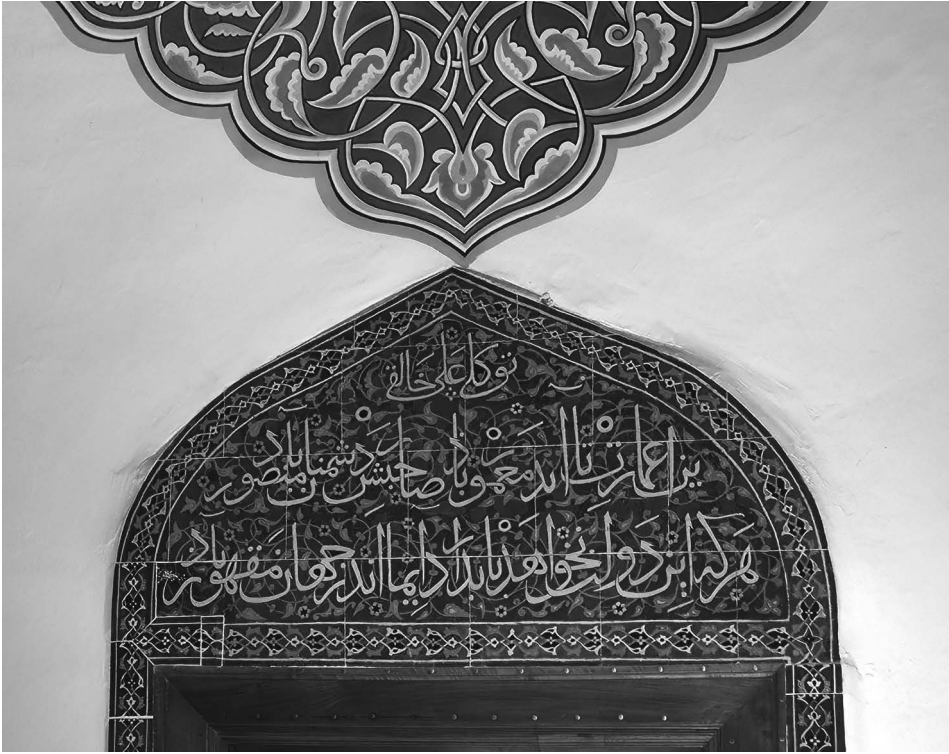 توکلی علی خالقی
این عمارت تا ابد معمور باد صاحبش بر دشمنان منصور باد
هر که این دولت نخواهد پایدار دایما اندر جهان مقهور باد